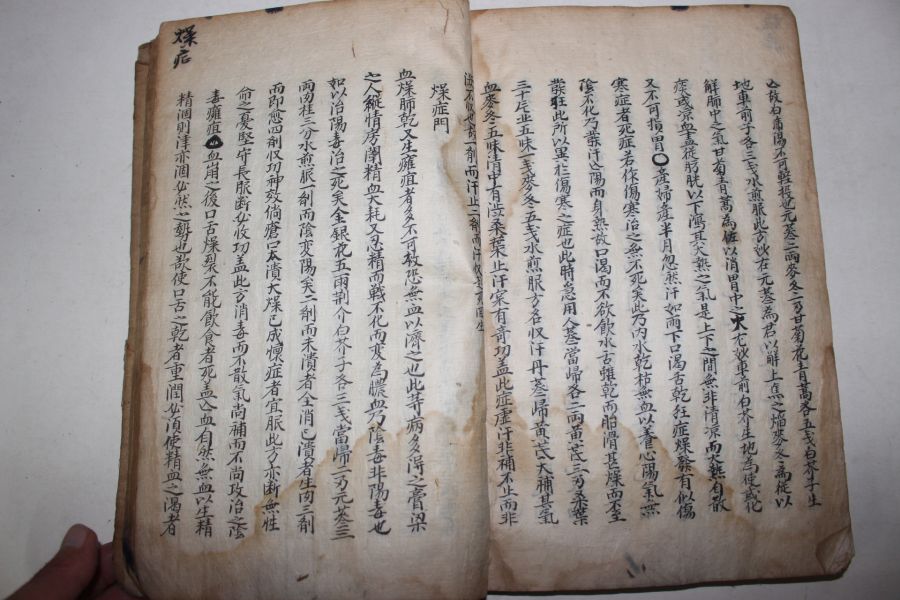 故白䔍陽不可輕投也元蔘二兩麥冬二刃甘菊花靑蒿各五戔白芥子生
地車前子各三戔水煎服此方妙在元蔘為君以解上焦之焰麥冬為從以
解肺中之氣甘菊靑蒿為佐以消胃中之火尤妙車前白芥生地為使或化
痰或凉血盖從膀胱以下瀉其火熱之氣是上下之間無非淸凉而火熱自散
又不可損胃○產婦產半月忽然汗如雨下口渴舌乾狂症燥發有似傷
寒症者死症若作傷寒治之無不死矣此乃內水乾枯無血以養心陽氣無
陰不化乃發汗亡陽而身熱故口渴而不欲飮水舌雖乾而胎滑甚燥而不至
發狂此所以異於傷寒之症也此時急用人蔘當歸各二兩黃芪三刃桑葉
三十片五味一戔麥冬五戔水煎服方名收汗丹蔘歸黃芪大補其氣
血麥冬五味淸中有澁桑葉止汗實有奇功盖此症虛汗非補不止而非
澁不收也故一劑而汗止二劑而汗收
燥症門
血燥肺乾又生癰疽者多不可救恐無血以濟之也此等病多得之膏粱
之人縱情房闈精血大耗又忍精而戰不化而変為膿血乃陰毒非陽毒也
如以治陽毒治之死矣金銀花五兩荆介白芥子各三戔當歸二刃元蔘三
兩肉桂三分水煎服一劑而陰变陽矣二劑而未潰者全消已潰者生肉三劑
而即愈四劑收功神效倘瘡口本潰大燥已成懷症者宜服此方亦斷無性
命之憂堅守長服斷必收功盖此方消毒而不散氣尚補而不尚攻治之陰
毒癰疽 血崩之後口舌燥裂不能飮食者死盖亡血自然無血以生精
精涸則津亦涸必然之勢也欲使口舌之乾者重潤必須使精血之渴者
燥症